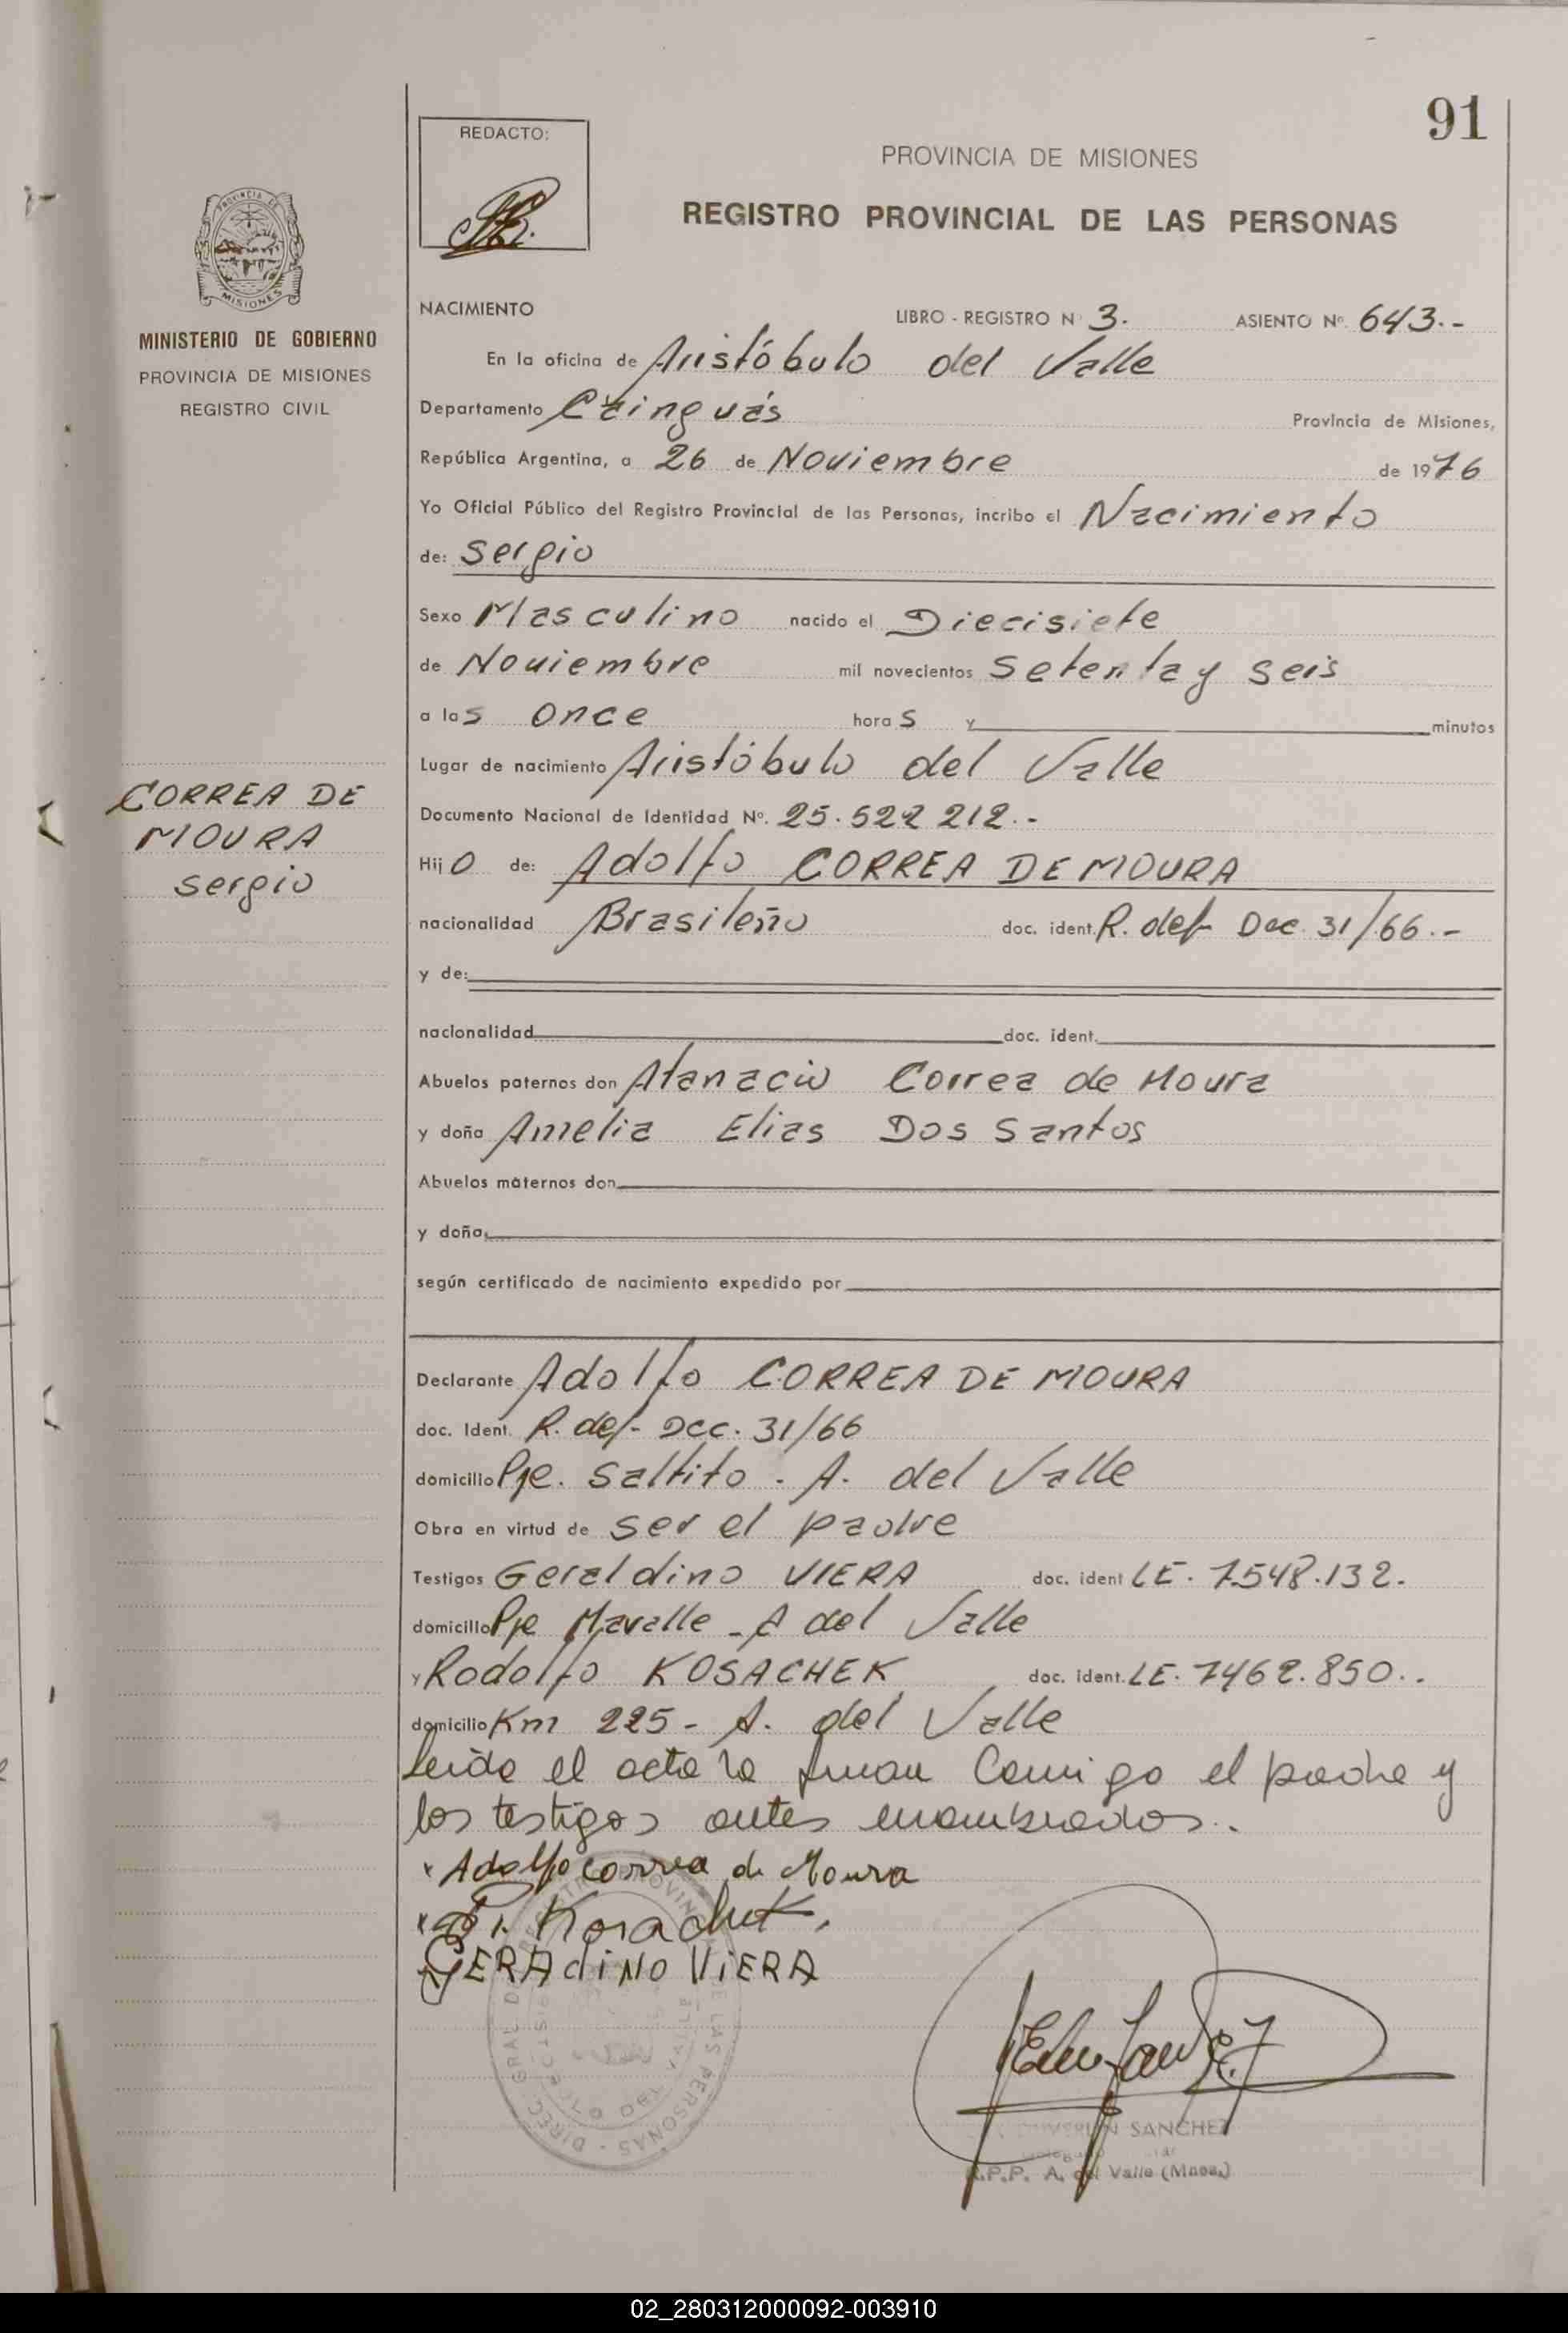 91
REDACTO:
PROVINCIA DE MISIONES
REGISTRO PROVINCIAL DE LAS PERSONAS
PROVINCIA DE
MISIONES
MINISTERIO DE GOBIERNO
PROVINCIA DE MISIONES
REGISTRO CIVIL
CORREA DE
MOURA
Sergio
NACIMIENTO LIBRO - REGISTRO Nº 3. ASIENTO Nº 643.-
En la oficina de Aristóbulo del Valle
Departamento Cainguás Provincia de Misiones,
República Argentina, a 26 de Noviembre de 1976
Yo Oficial Público del Registro Provincial de las Personas, incribo el Nacimiento
de: Sergio
Sexo Masculino nacido el Diecisiete
de Noviembre mil novecientos Setenta y Seis
a las Once horas y minutos
Lugar de nacimiento Aristóbulo del Valle
Documento Nacional de Identidad Nº. 25.522 212.-
Hijo de: Adolfo CORREA DE MOURA
nacionalidad Brasileño doc. ident. R. def- Dec. 31/66.-
y de:
nacionalidad doc. ident.
Abuelos paternos don Atanacio Correa de Moura
y doña Amelia Elias Dos Santos
Abuelos maternos don
y doña
según certificado de nacimiento expedido por
Declarante Adolfo CORREA DE MOURA
doc. Ident. R. def- Dec. 31/66
domicilio Pje. Saltito - A. del Valle
Obra en virtud de ser el padre
Testigos Geraldino VIERA doc. ident LE. 7.548.132.
domicilio Pje Mavalle - A del Valle
y Rodolfo KOSACHEK doc. ident. LE. 7462.850..
domicilio Km 225 - A. del Valle
Leida el acta la firman Comigo el padre y
los testigos antes enombrados.
x Adolfo correa de Moura
x Kosachek
GERAdiNO ViERA
SANCHEZ
R.P.P. A. del Valle (Mnes.)
02_280312000092-003910